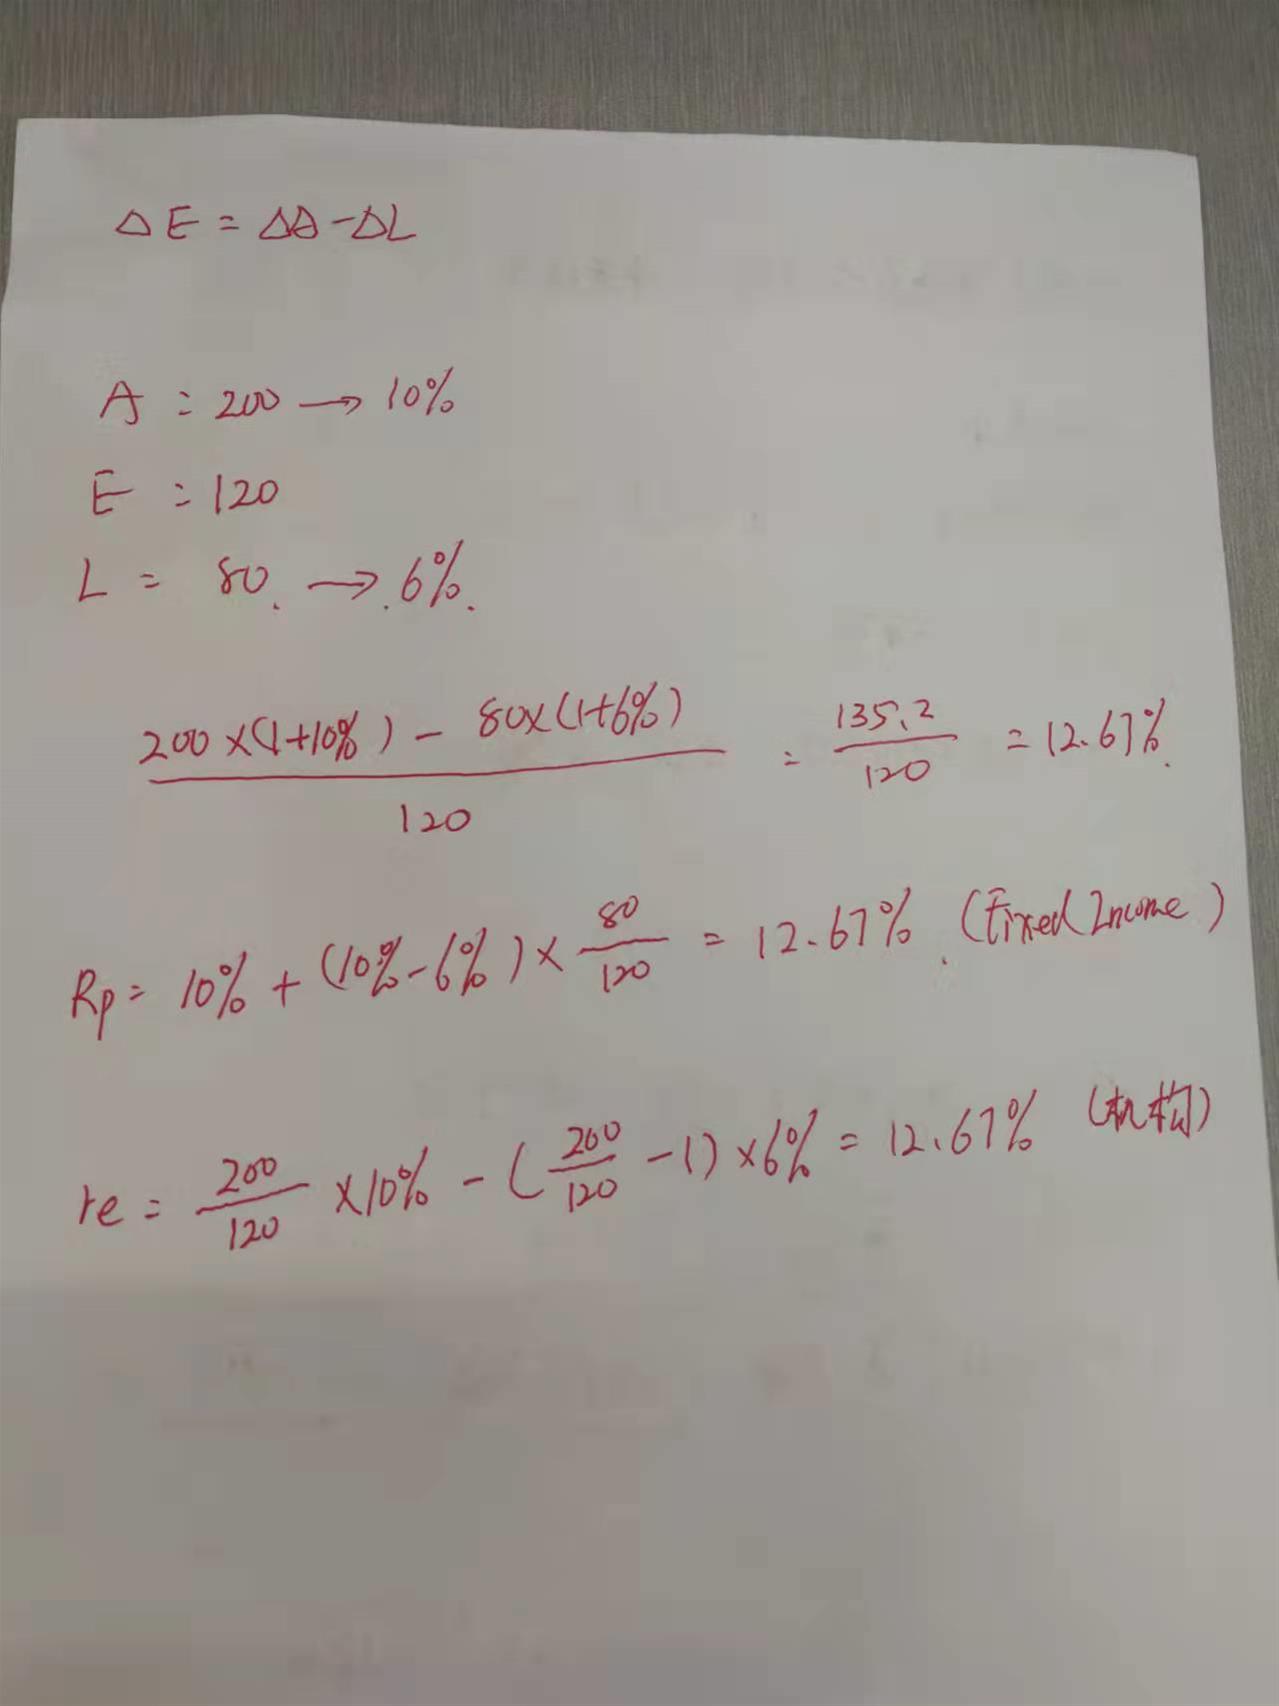 ΔE = ΔA - ΔL
A = 200 → 10%
E = 120
L = 80. → 6%.
(200×(1+10%) - 80×(1+6%))/120 = 135.2/120 = 12.67%.
Rp = 10% + (10% - 6%) × 80/120 = 12.67%. (Fixed Income)
re = 200/120 × 10% - (200/120 - 1) × 6% = 12.67% (机构)